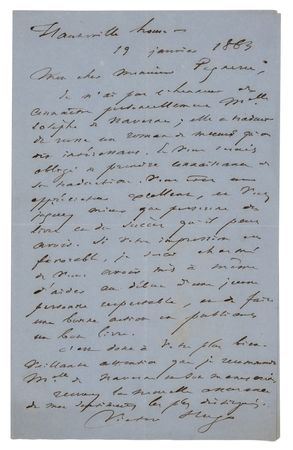 Hauteville house
19 janvier 1863
Mon cher Monsieur Pagnerre,
Je n'ai pas l'honneur de
connaître personnellement Mlle
Joseph de ; elle a traduit
du russe un roman de mœurs qu'on
dit intéressant. Je vous serais
obligé de prendre connaissance de
sa traduction. Vous êtes un
appréciateur excellent, et vous
jugerez mieux que personne du
livre et du succès qu'il peut
avoir. Si votre impression est
favorable, je serai charmé
de vous avoir mis à même
d'aider au début d'une jeune
personne respectable, et de faire
une bonne action en publiant
un bon livre.
C'est donc à votre plus bien-
veillante attention que je recommande
Mlle de et son manuscrit
recevez la nouvelle assurance
de mes sentiments les plus distingués.
Victor Hugo